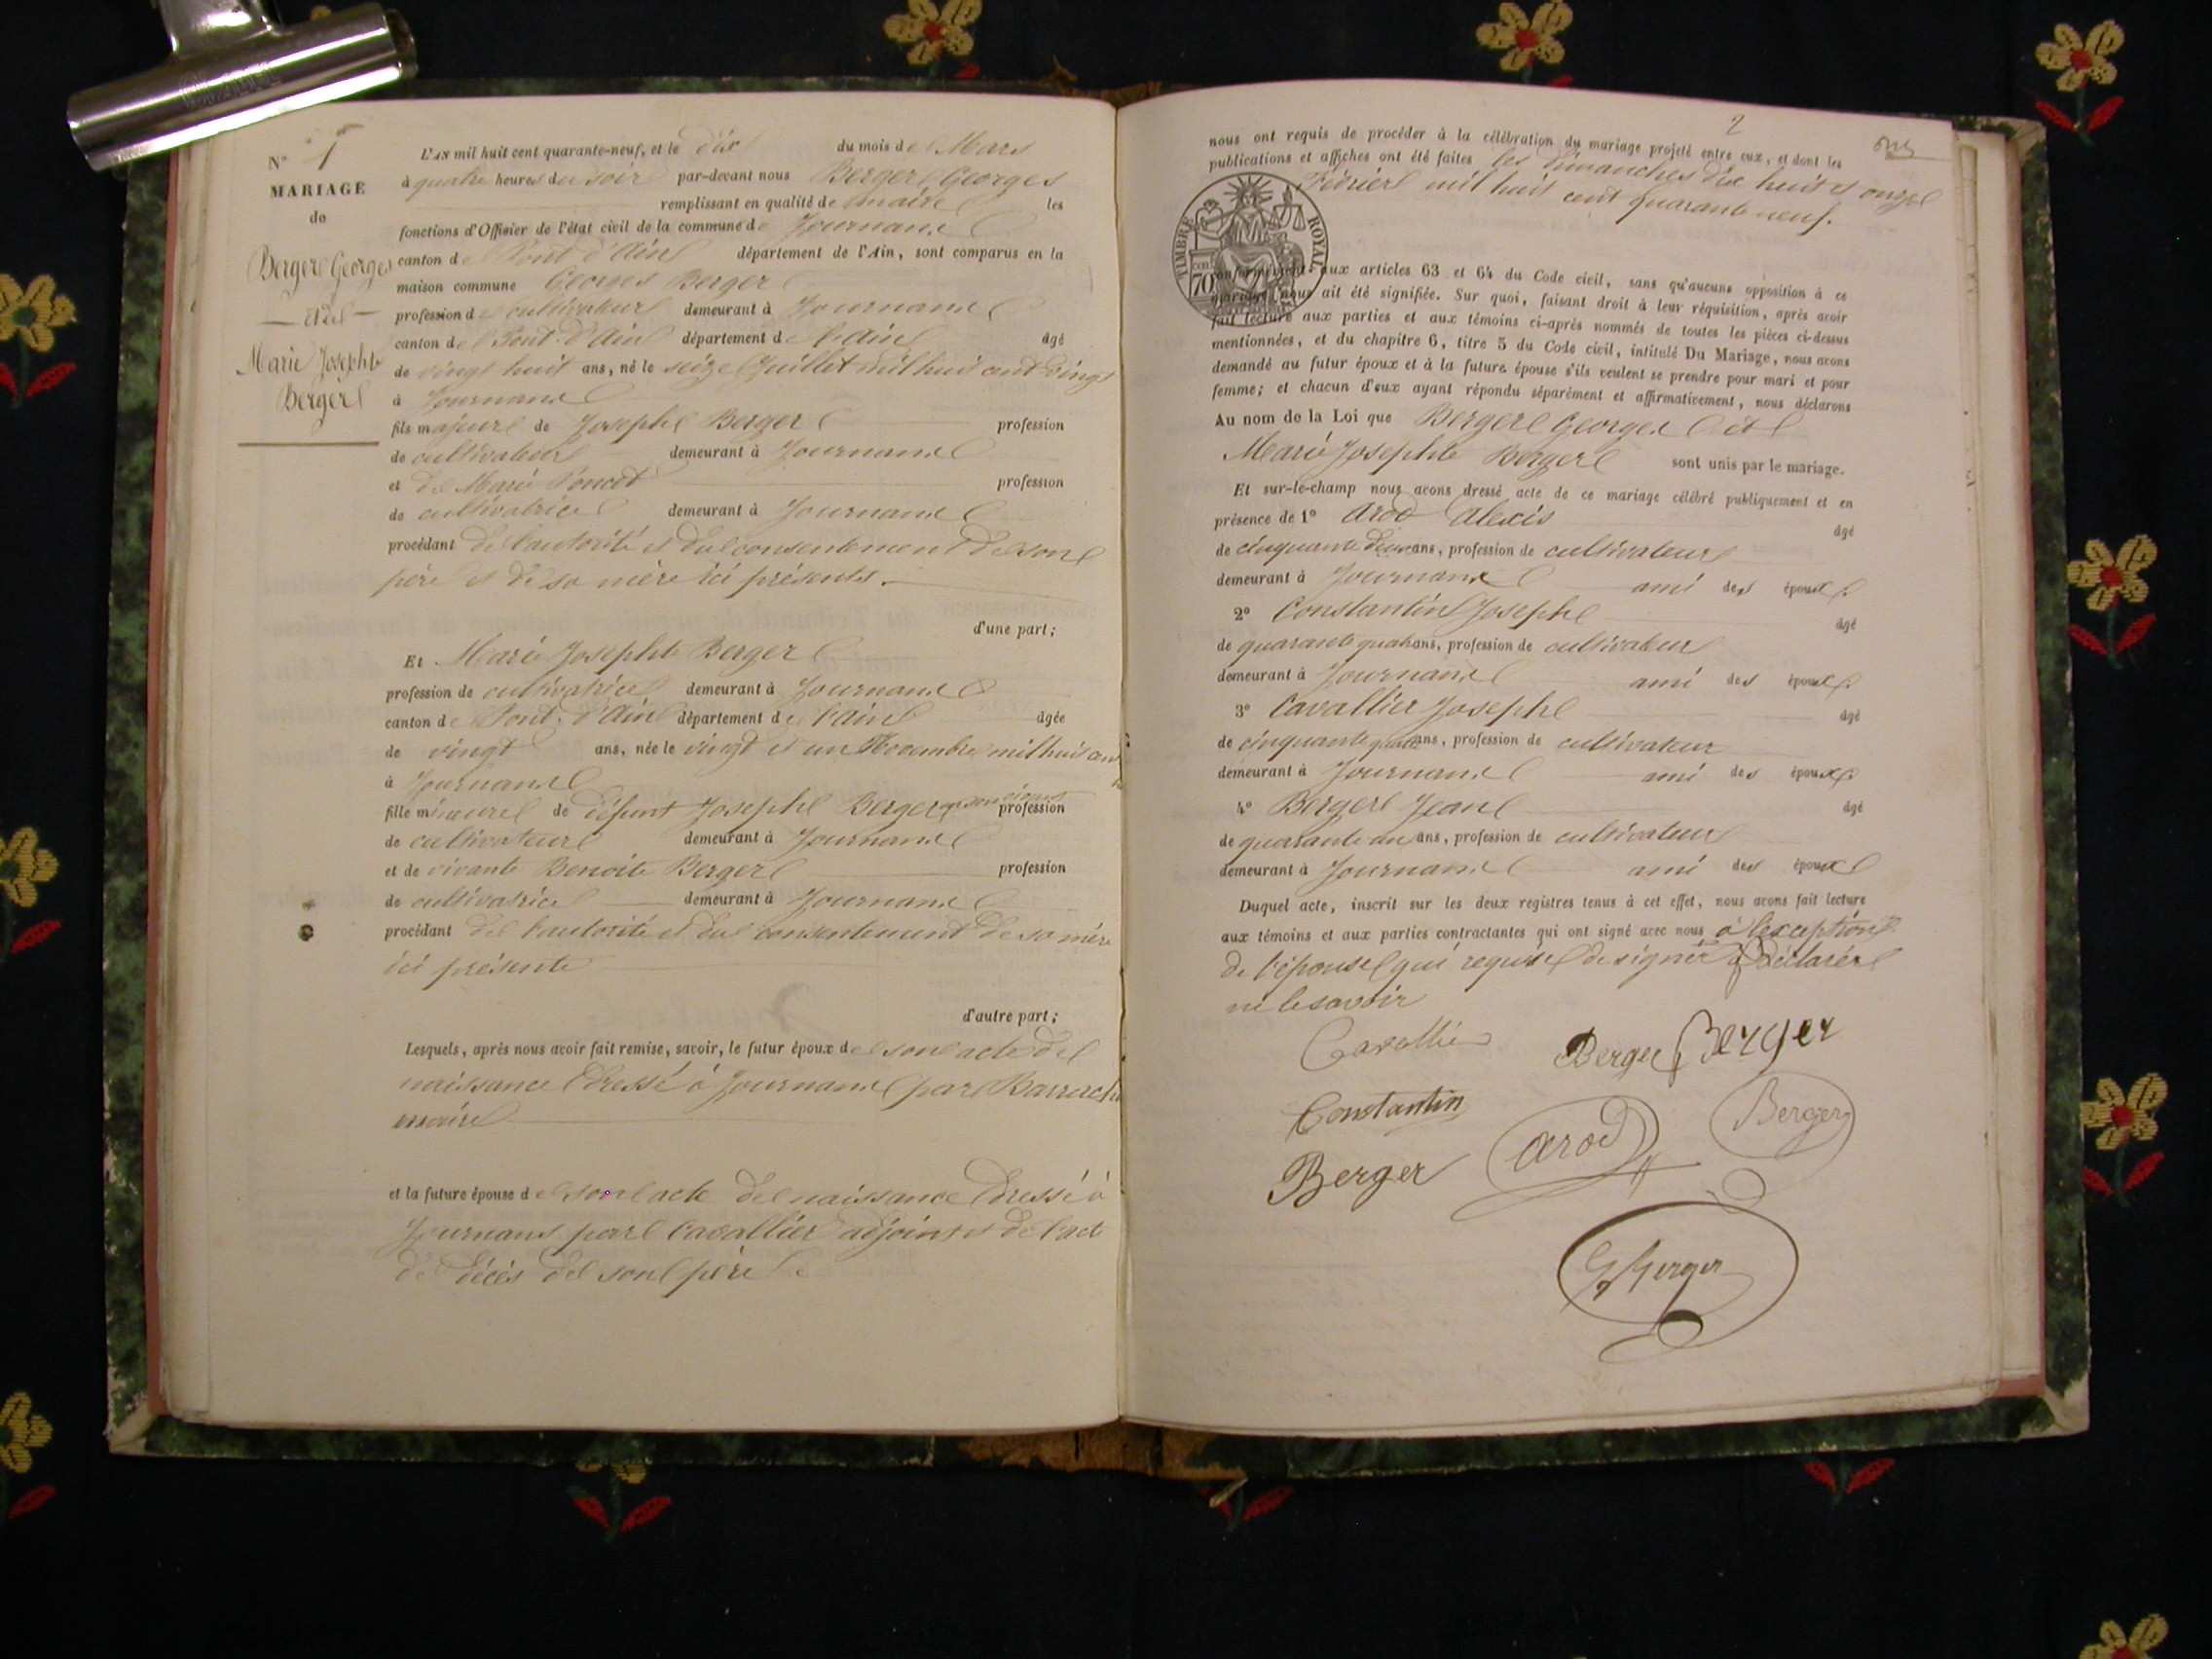 N° 1
MARIAGE
de
Berger Georges
et
Marie Josephte
Berger
L'AN mil huit cent quarante-neuf, et le dix du mois de Mars
à quatre heures du soir par-devant nous Berger Georges
remplissant en qualité de maire les
fonctions d'Officier de l'état civil de la commune de Journans
canton de Pont d'Ain département de l'Ain, sont comparus en la
maison commune Georges Berger
profession de cultivateur demeurant à Journans
canton de Pont-d'Ain département de l'Ain âgé
de vingt huit ans, né le seize Juillet mil huit cent vingt
à Journans
fils majeur de Joseph Berger profession
de cultivateur demeurant à Journans
et de Marie Poncet profession
de cultivatrice demeurant à Journans
procédant de l'autorité et du consentement de son
père et de sa mère ici présents.
d'une part;
Et Marie Josephte Berger
profession de cultivatrice demeurant à Journans
canton de Pont-d'Ain département de l'Ain âgée
de vingt ans, née le vingt et un Novembre mil huit cent
à Journans
fille mineure de défunt Joseph Berger profession
de cultivateur demeurant à Journans
et de vivante Benoite Berger profession
de cultivatrice demeurant à Journans
procédant de l'autorité et du consentement de sa mère
ici présente
d'autre part;
Lesquels, après nous avoir fait remise, savoir, le futur époux de son acte de
naissance dressé à Journans par
maire
et la future épouse de son acte de naissance dressé à
Journans par Cavallier adjoint et de l'acte
de décès de son père
2
nous ont requis de procéder à la célébration du mariage projeté entre eux, et dont les
publications et affiches ont été faites les dimanches dix huit et onze
Février mil huit cent quarante neuf.
TIMBRE ROYAL
70
conformément aux articles 63 et 64 du Code civil, sans qu'aucune opposition à ce
mariage nous ait été signifiée. Sur quoi, faisant droit à leur réquisition, après avoir
fait lecture aux parties et aux témoins ci-après nommés de toutes les pièces ci-dessus
mentionnées, et du chapitre 6, titre 5 du Code civil, intitulé Du Mariage, nous avons
demandé au futur époux et à la future épouse s'ils veulent se prendre pour mari et pour
femme; et chacun d'eux ayant répondu séparément et affirmativement, nous déclarons
Au nom de la Loi que Berger Georges et
Marie Josephte Berger sont unis par le mariage.
Et sur-le-champ nous avons dressé acte de ce mariage célébré publiquement et en
présence de 1° Arod Alexis âgé
de cinquante deux ans, profession de cultivateur
demeurant à Journans ami des époux
2° Constantin Joseph âgé
de quarante quatre ans, profession de cultivateur
demeurant à Journans ami des époux
3° Cavallier Joseph âgé
de cinquante ans, profession de cultivateur
demeurant à Journans ami des époux
4° Berger Jean âgé
de quarante un ans, profession de cultivateur
demeurant à Journans ami des époux
Duquel acte, inscrit sur les deux registres tenus à cet effet, nous avons fait lecture
aux témoins et aux parties contractantes qui ont signé avec nous à l'exception
de l'épouse qui requise de signer a déclaré
ne le savoir
Cavallier Berger Berger
Constantin Arod Berger
Berger
G Berger